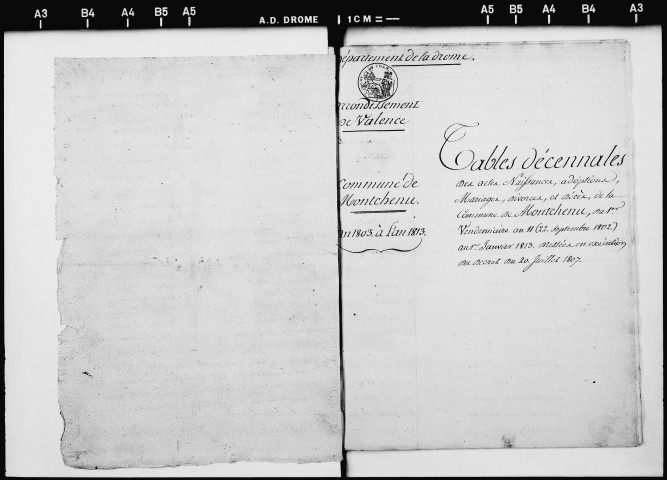 A3 B4 A4 B5 A5 A.D. DROME 1 CM A5 B5 A4 B4 A3
Département de la drome.
arrondissement
de Valence
Commune de
Montchenu.
an 1803. à l'an 1813.
Tables décennales
des actes Naissances, adoptions,
Mariages, divorces, et décès, de la
Commune de Montchenu, du 1er
Vendemiaire an 11 (22. septembre 1802.)
au 1er Janvier 1813. dressées en exécution
du decret du 20. Juillet 1807.